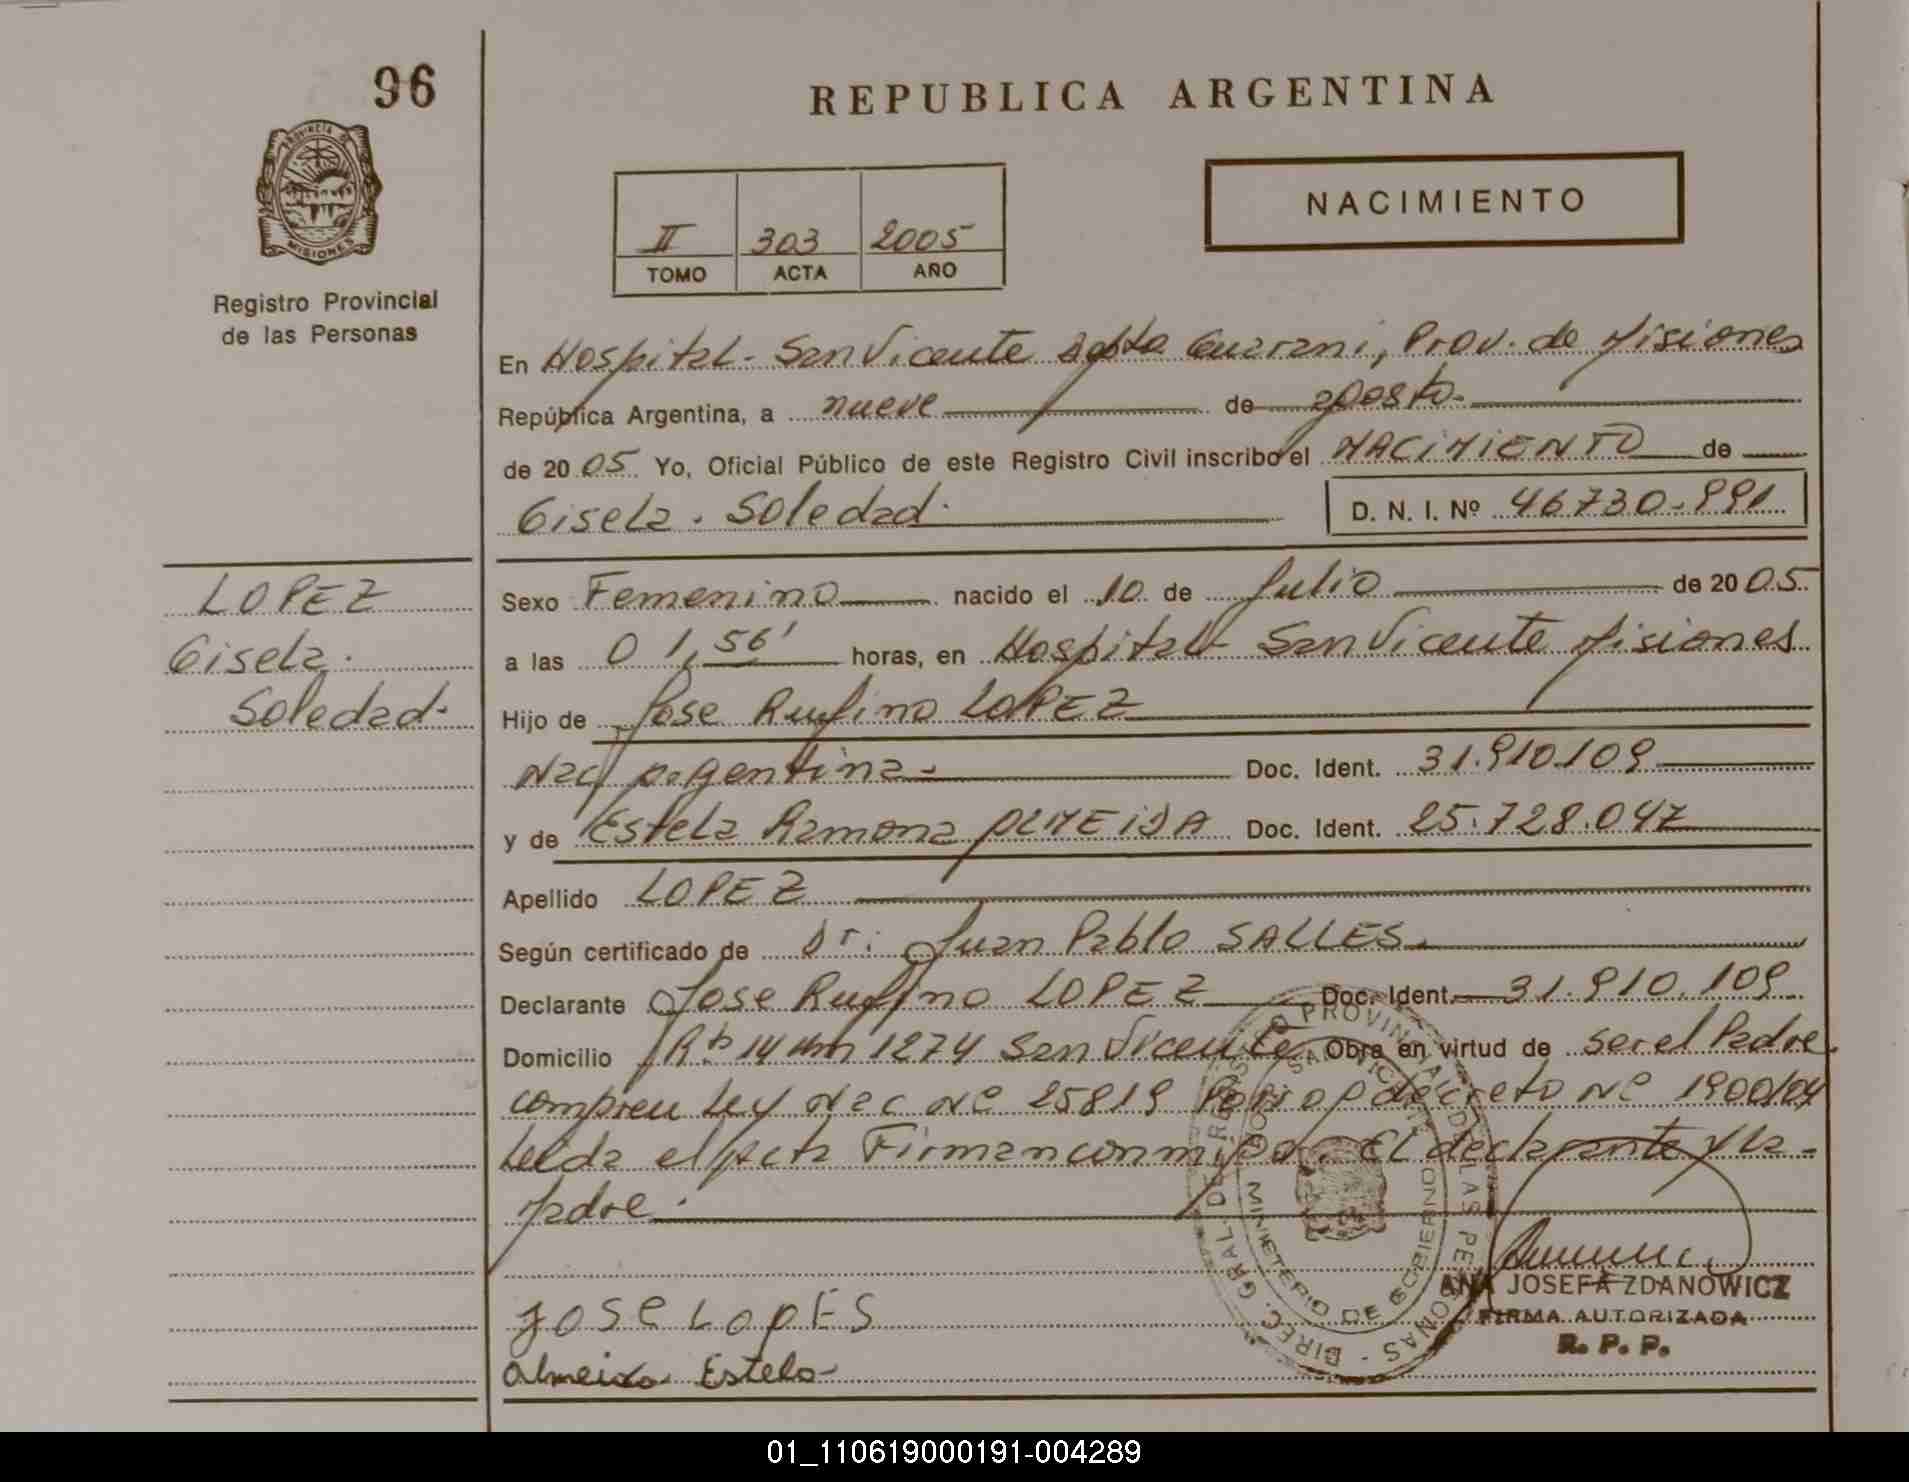 96
REPUBLICA ARGENTINA
PROVINCIA D
MISIONES
Registro Provincial
de las Personas
NACIMIENTO
II 303 2005
TOMO ACTA AÑO
En Hospital - San Vicente Dpto Guarani, Prov. de Misiones
República Argentina, a nueve de agosto.
de 20 05 Yo, Oficial Público de este Registro Civil inscribo el NACIMIENTO de
Gisela . Soledad. D. N. I. Nº 46730.991
LOPEZ
Gisela.
Soledad.
Sexo Femenino nacido el 10 de Julio de 20 05
a las 01,56' horas, en Hospital San Vicente Misiones
Hijo de Jose Rufino LOPEZ
Nac Argentina - Doc. Ident. 31.910.109
y de Estela Ramona ALMEIDA Doc. Ident. 25.728.047
Apellido LOPEZ
Según certificado de Dr: Juan Pablo SALLES.
Declarante Jose Rufino LOPEZ Doc. Ident. 31.910.109
Domicilio Rta 14 km 1274 San Vicente Obra en virtud de ser el Padre.
Ley Nac Nº 25819 decreto Nº 1900/04
Leida el Acta Firman conmigo El declarante y la
Madre.
DIREC. GRAL. DEL REGISTRO PROVINCIAL DE LAS PERSONAS
MINISTERIO DE GOBIERNO
ANA JOSEFA ZDANOWICZ
FIRMA AUTORIZADA
R. P. P.
JOSE LOPES
Almeida Estela
01_110619000191-004289